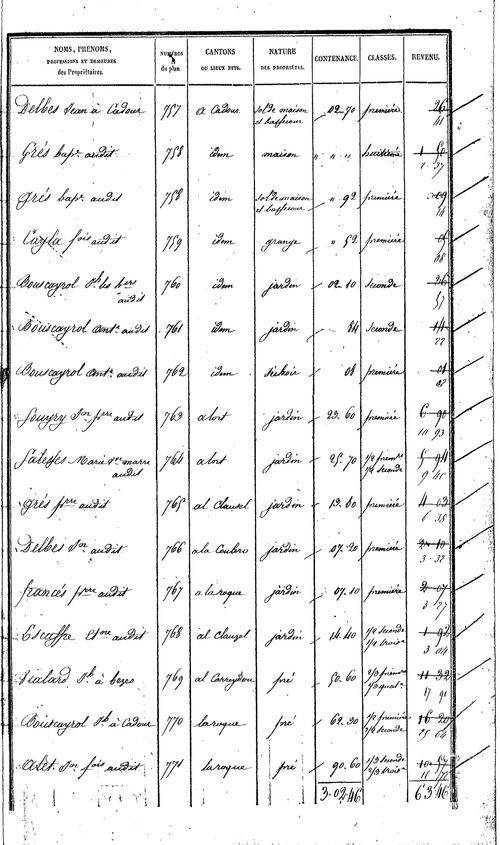 NOMS, PRÉNOMS, PROFESSIONS ET DEMEURES des Propriétaires. NUMÉROS du plan. CANTONS OU LIEUX DITS. NATURE DES PROPRIÉTÉS. CONTENANCE. CLASSES. REVENU.
Delbes Jean à Cadour 757 a Cadour sol de maison et bassecour 02 70 première 26
41
Grés bapte audit 758 idem maison " " " huitième 1 50
1 37
Grés bapte audit 758 idem sol de maison et bassecour " 92 première 09
14
Cayla fois audit 759 idem grange " 52 première 05
08
Bouscayrol les hers audit 760 idem jardin 02 10 seconde 36
57
Bouscayrol ante audit 761 idem jardin 84 seconde 14
22
Bouscayrol ante audit 762 idem 08 première 01
02
Jn pre audit 763 alort jardin 23. 60 première 6 90
10 93
Marie audit 764 alort jardin 25. 70 1/2 premre 1/2 seconde 5 94
9 45
Grés pre audit 765 al Clausel jardin 13. 80 première 4 03
6 38
Delbes Jn audit 766 a la jardin 07. 20 première 2 10
3 32
francés pre audit 767 a laroque jardin 07. 10 première 2 07
3 27
Escaffre etne audit 768 al Clauzel jardin 14. 40 1/2 seconde 1/2 trois 1 92
3 04
Vialard à bezes 769 al Carreydou pré 50. 60 11 32
17 91
Bouscayrol à Cadour 770 laroque pré 62. 30 1/2 première 1/2 seconde 16 20
25 64
Alet Jn fois audit 771 laroque pré 90. 60 1/3 seconde 2/3 trois 10
11
3. 02. 46 63. 46